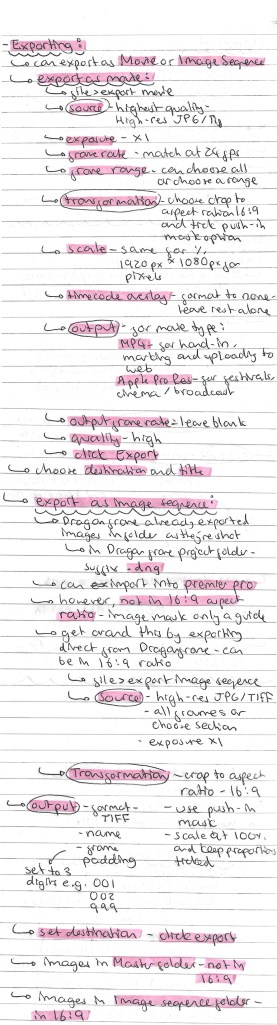 - Exporting:
↳ can export as Movie or Image Sequence
↳ export as movie:
↳ file > export movie
↳ source - highest quality -
High-res JPG /
↳ exposure - x1
↳ frame rate - match at 24fps
↳ frame range - can choose all
or choose a range
↳ transformation - choose crop to
aspect ration 16:9
and tick push-in
mask option
↳ scale - same for %,
1920px x 1080px for
pixels
↳ timecode overlay - format to none -
leave rest alone
↳ output - for movie type:
MPG4 - for hand-in,
marking and uploading to
web
Apple ProRes - for festivals,
cinema / broadcast
↳ output frame rate = leave blank
↳ quality - high
↳ click Export
↳ choose destination and title
↳ export as image sequence:
↳ Dragonframe already exported
images in folder as they're shot
↳ in Dragonframe project folder -
suffix - .dng
↳ can import into premier pro
↳ however, not in 16:9 aspect
ratio - image mask only a guide
↳ get around this by exporting
direct from Dragonframe - can
be in 16:9 ratio
↳ file > export image sequence
↳ Source - high-res JPG/TIFF
- all frames or
choose section
- exposure x1
↳ Transformation - crop to aspect
ratio - 16:9
- use push-in
mask
- scale at 100%.
and keep proportions
ticked
↳ output - format -
TIFF
- name
- frame
padding
set to 3
digits e.g. 001
002
999
↳ set destination - click export
↳ images in Main folder - not in
16:9
↳ images in Image sequence folder -
in 16:9